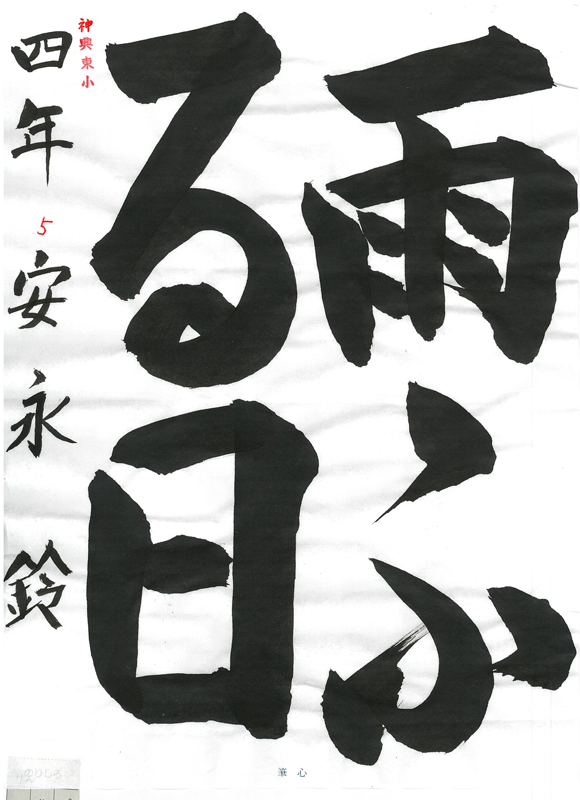 雨ふ
る日
神興東小
四年 5 安永 鈴
心筆